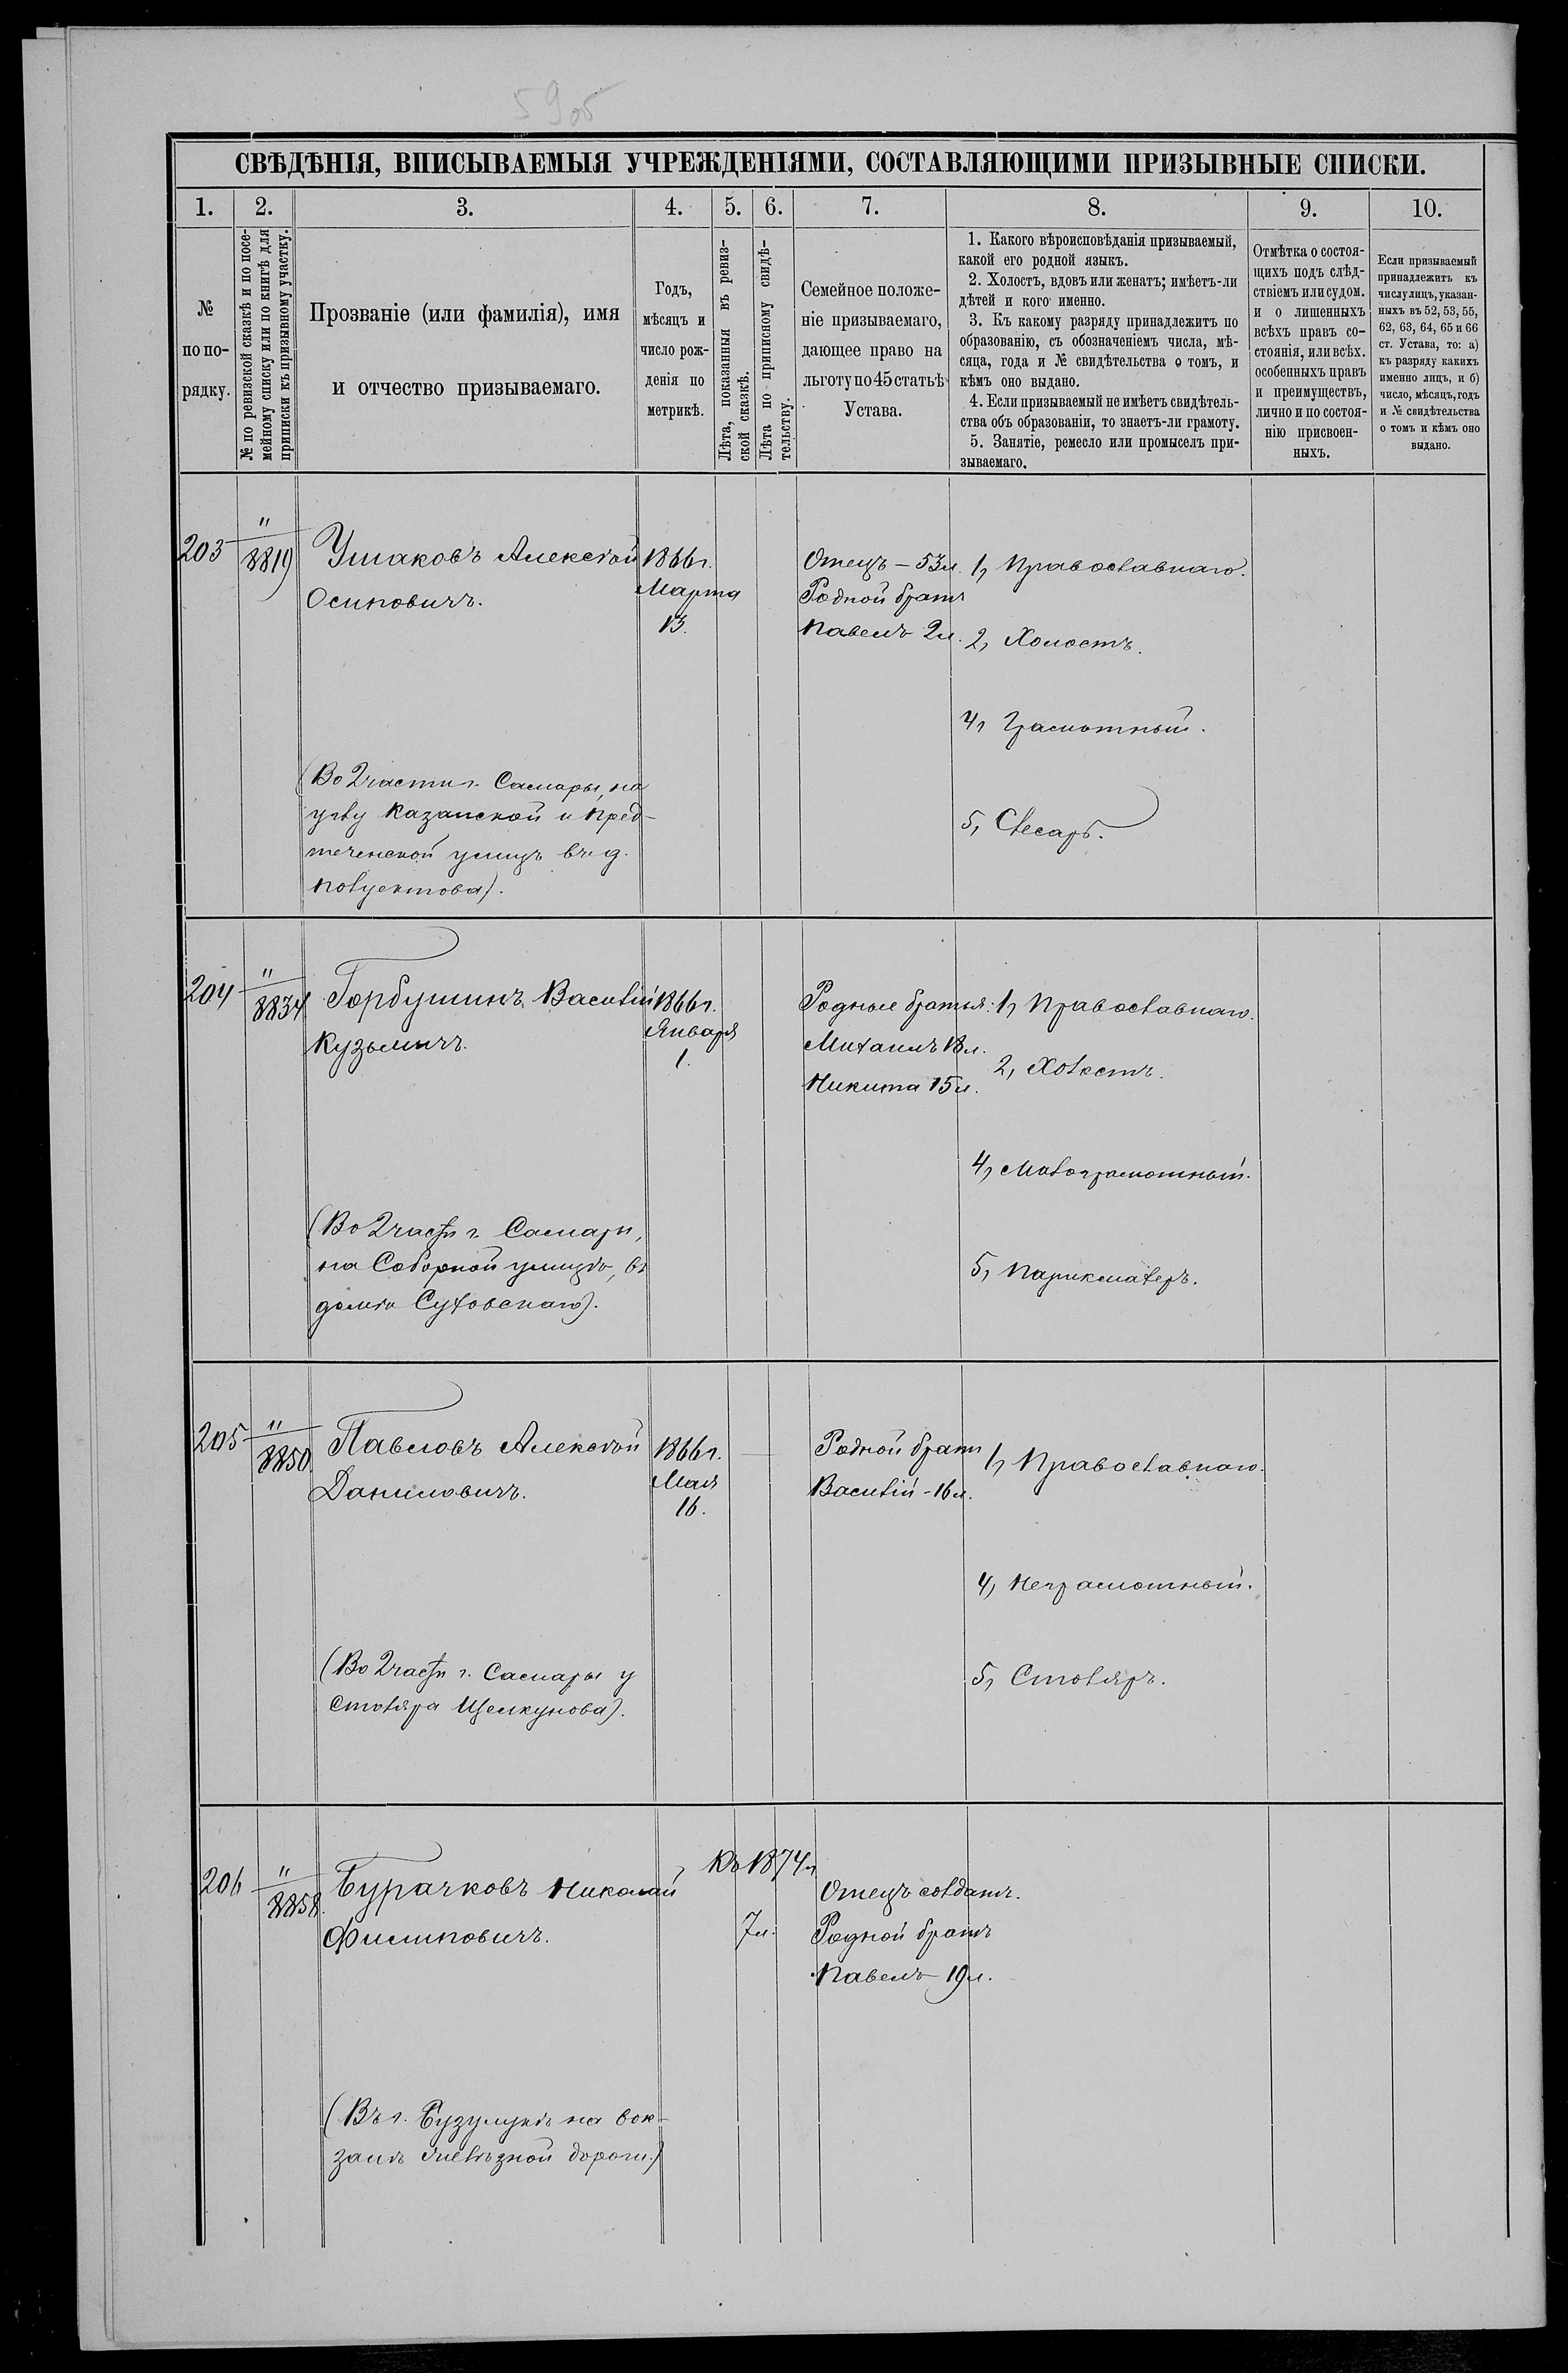 5905
СВѢДѢНІЯ, ВПИСЫВАЕМЫЯ УЧРЕЖДЕНІЯМИ, СОСТАВЛЯЮЩИМИ ПРИЗЫВНЫЕ СПИСКИ.
1. 2. 3. 4. 5. 6. 7. 8. 9. 10.
№
по по-
рядку.
№ по ревизской сказкѣ и по посе-
мейному списку или по книгѣ для
приписки къ призывному участку.
Прозваніе (или фамилія), имя
и отчество призываемаго.
Годъ,
мѣсяцъ и
число рож-
денія по
метрикѣ.
Лѣта, показанныя въ ревиз-
ской сказкѣ.
Лѣта по приписному свидѣ-
тельству.
Семейное положе-
ніе призываемаго,
дающее право на
льготу по 45 статьѣ
Устава.
1. Какого вѣроисповѣданія призываемый,
какой его родной языкъ.
2. Холостъ, вдовъ или женатъ; имѣетъ-ли
дѣтей и кого именно.
3. Къ какому разряду принадлежитъ по
образованію, съ обозначеніемъ числа, мѣ-
сяца, года и № свидѣтельства о томъ, и
кѣмъ оно выдано.
4. Если призываемый не имѣетъ свидѣтель-
ства объ образованіи, то знаетъ-ли грамоту.
5. Занятіе, ремесло или промыселъ при-
зываемаго.
Отмѣтка о состоя-
щихъ подъ слѣд-
ствіемъ или судом.
и о лишенныхъ
всѣхъ правъ со-
стоянія, или всѣх.
особенныхъ правъ
и преимуществъ,
лично и по состоя-
нію присвоен-
ныхъ.
Если призываемый
принадлежитъ къ
числу лицъ, указан-
ныхъ въ 52, 53, 55,
62, 63, 64, 65 и 66
ст. Устава, то: а)
къ разряду какихъ
именно лицъ, и б)
число, мѣсяцъ, годъ
и № свидѣтельства
о томъ и кѣмъ оно
выдано.
203
"
8819
Ушаковъ Алексѣй
Осиповичъ.
1866 г.
Марта
13.
Отецъ – 53 л.
Родной братъ
Павелъ 2 л.
1, Православнаго.
2, Холостъ.
4, Грамотный.
5, Слесарь.
(Во 2 части г. Самары, на
углу Казанской и Пред-
теченской улицъ въ д.
Полуектова).
204
"
8834
Горбушинъ Василій
Кузьмичъ.
1866 г.
Января
1.
Родные братья:
Михаилъ 18 л.
Никита 15 л.
1, Православнаго.
2, Холостъ.
4, Малограмотный.
5, Парикмахеръ.
(Во 2 части г. Самары,
на Соборной улицѣ, въ
домѣ Суховскаго).
205
"
8850.
Павловъ Алексѣй
Даниловичъ.
1866 г.
Мая
16.
Родной братъ
Василій - 16 л.
1, Православнаго.
4, Неграмотный.
5, Столяръ.
(Во 2 части г. Самары у
столяра Щелкунова).
206
"
8858.
Бурачковъ Николай
Филиповичъ.
Къ 1874 г.
7 л.
Отецъ солдатъ.
Родной братъ
Павелъ – 19 л.
(Въ г. Бузулукѣ на вок-
залѣ желѣзной дороги.)